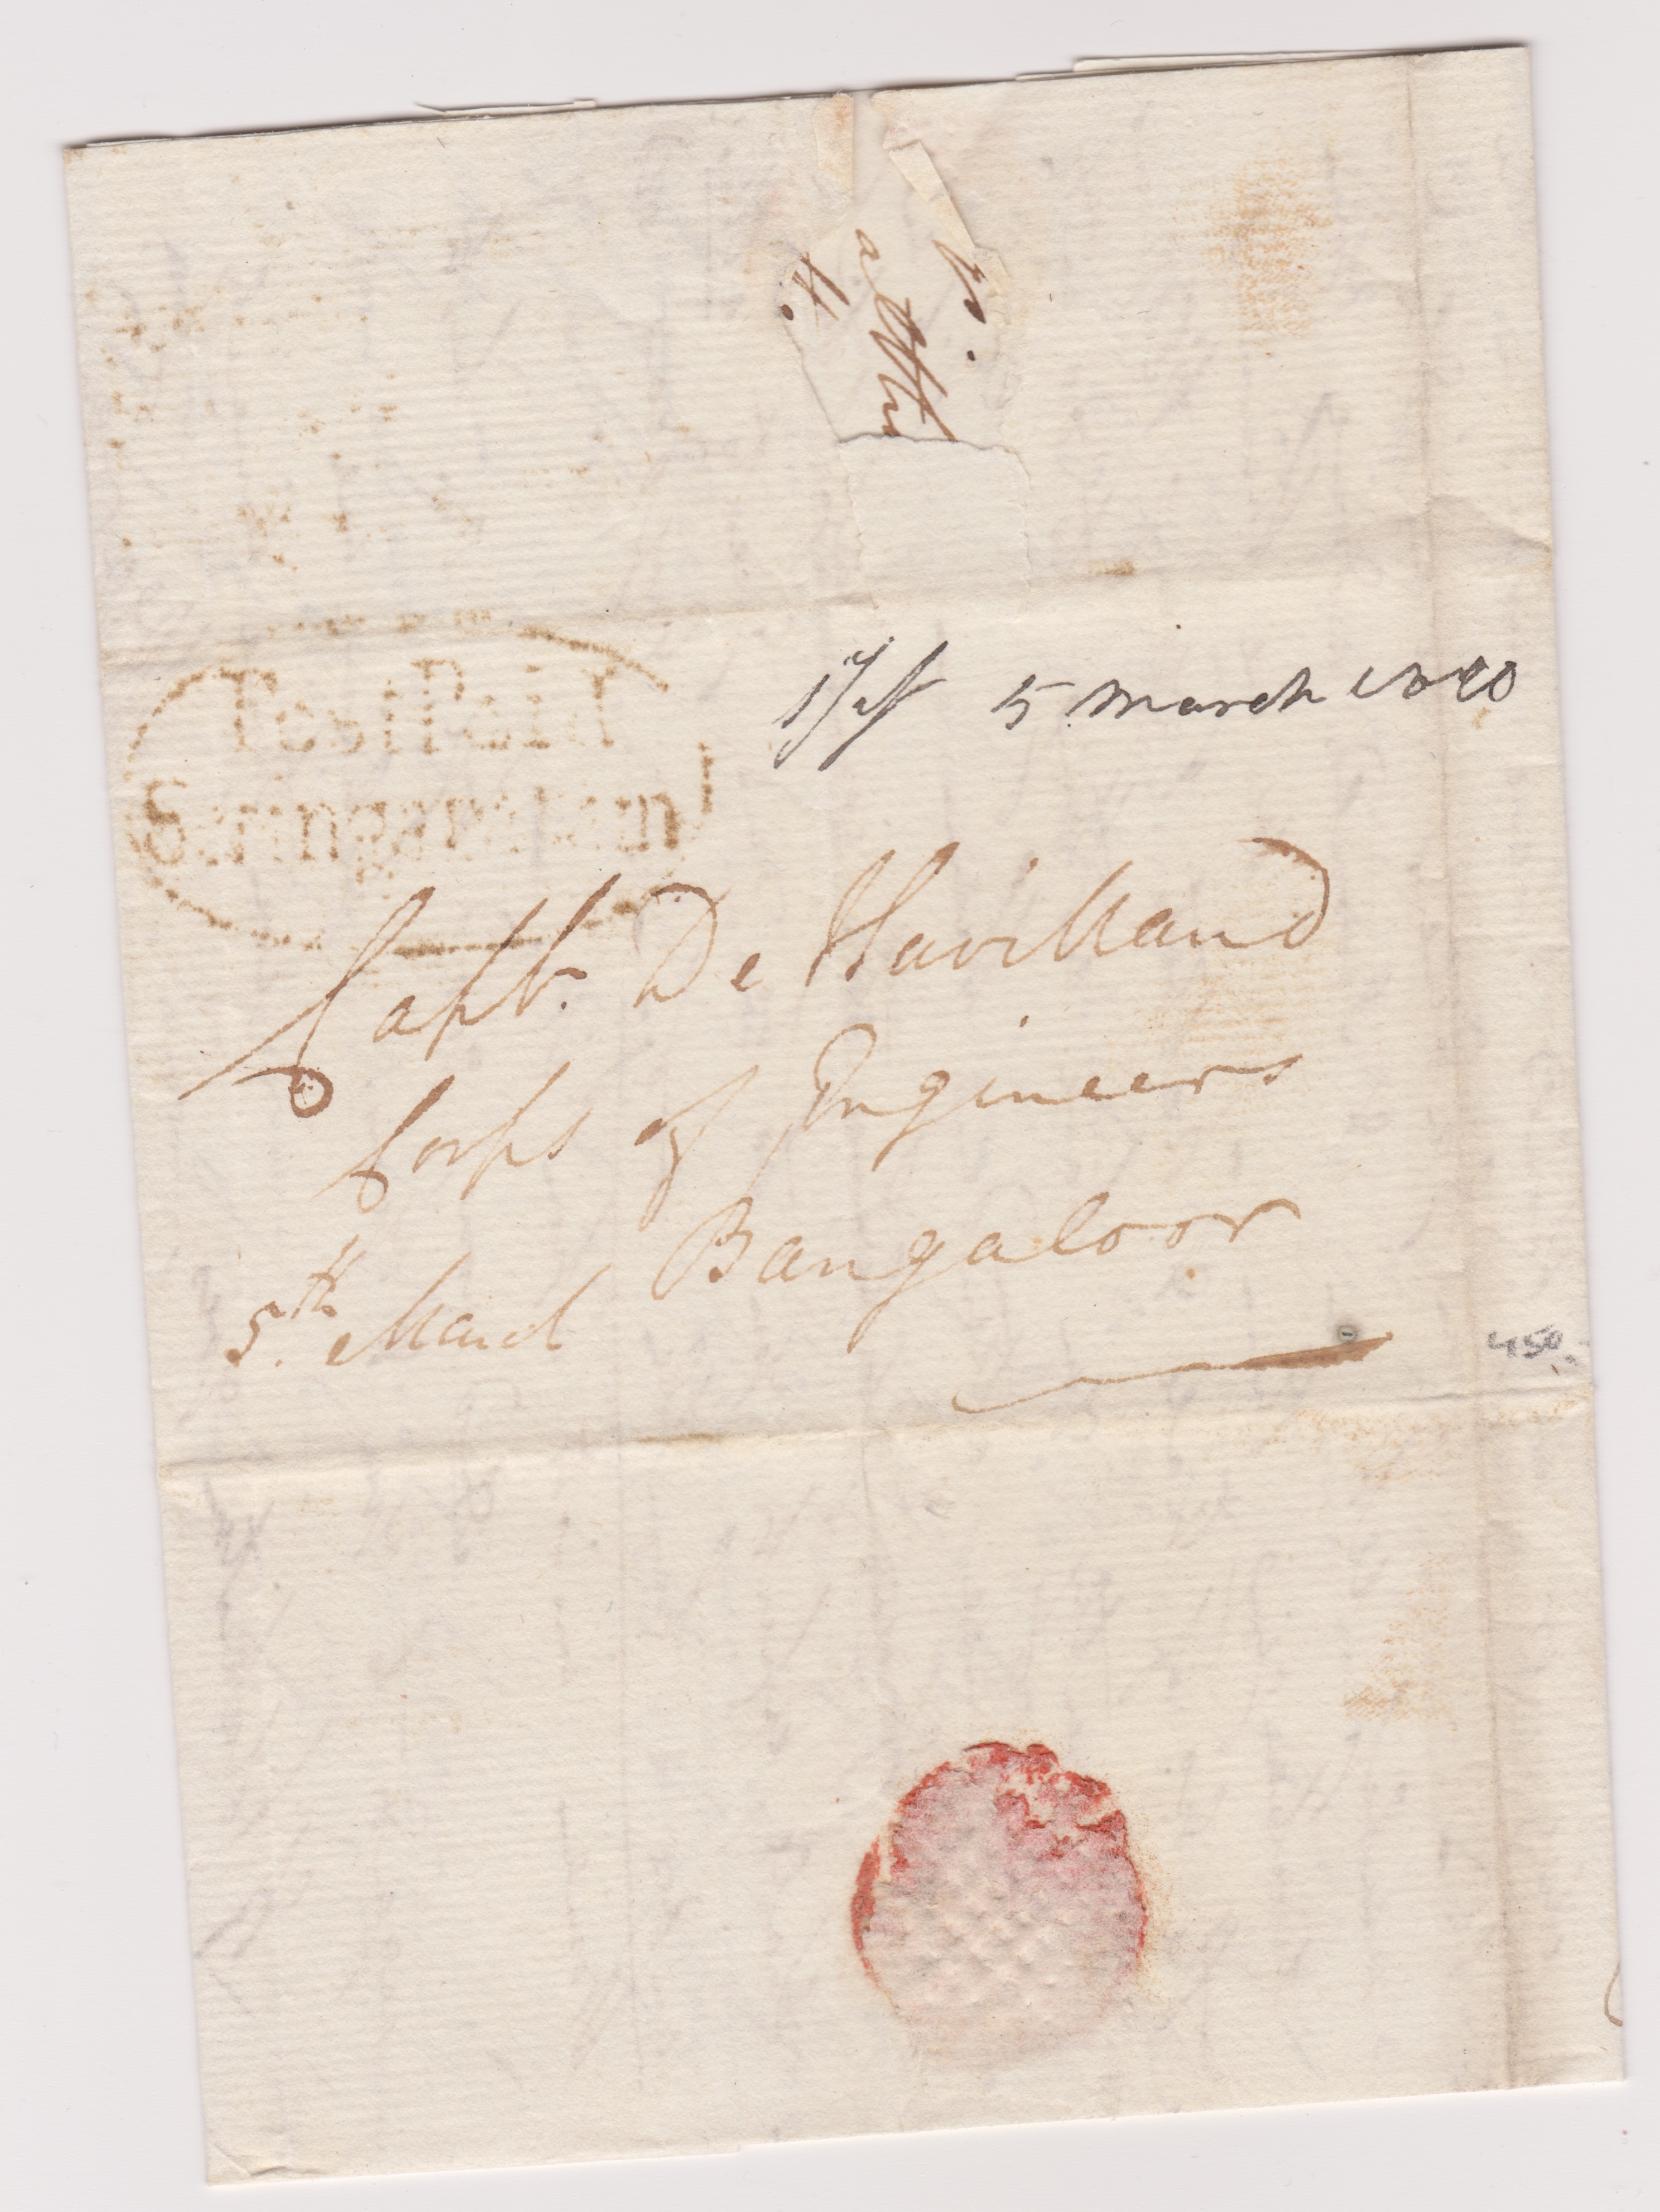 Post Paid
Seringapatam
5 March
Capt. De Havilland
Corps of Engineers
Bangaloor
5th. March
450